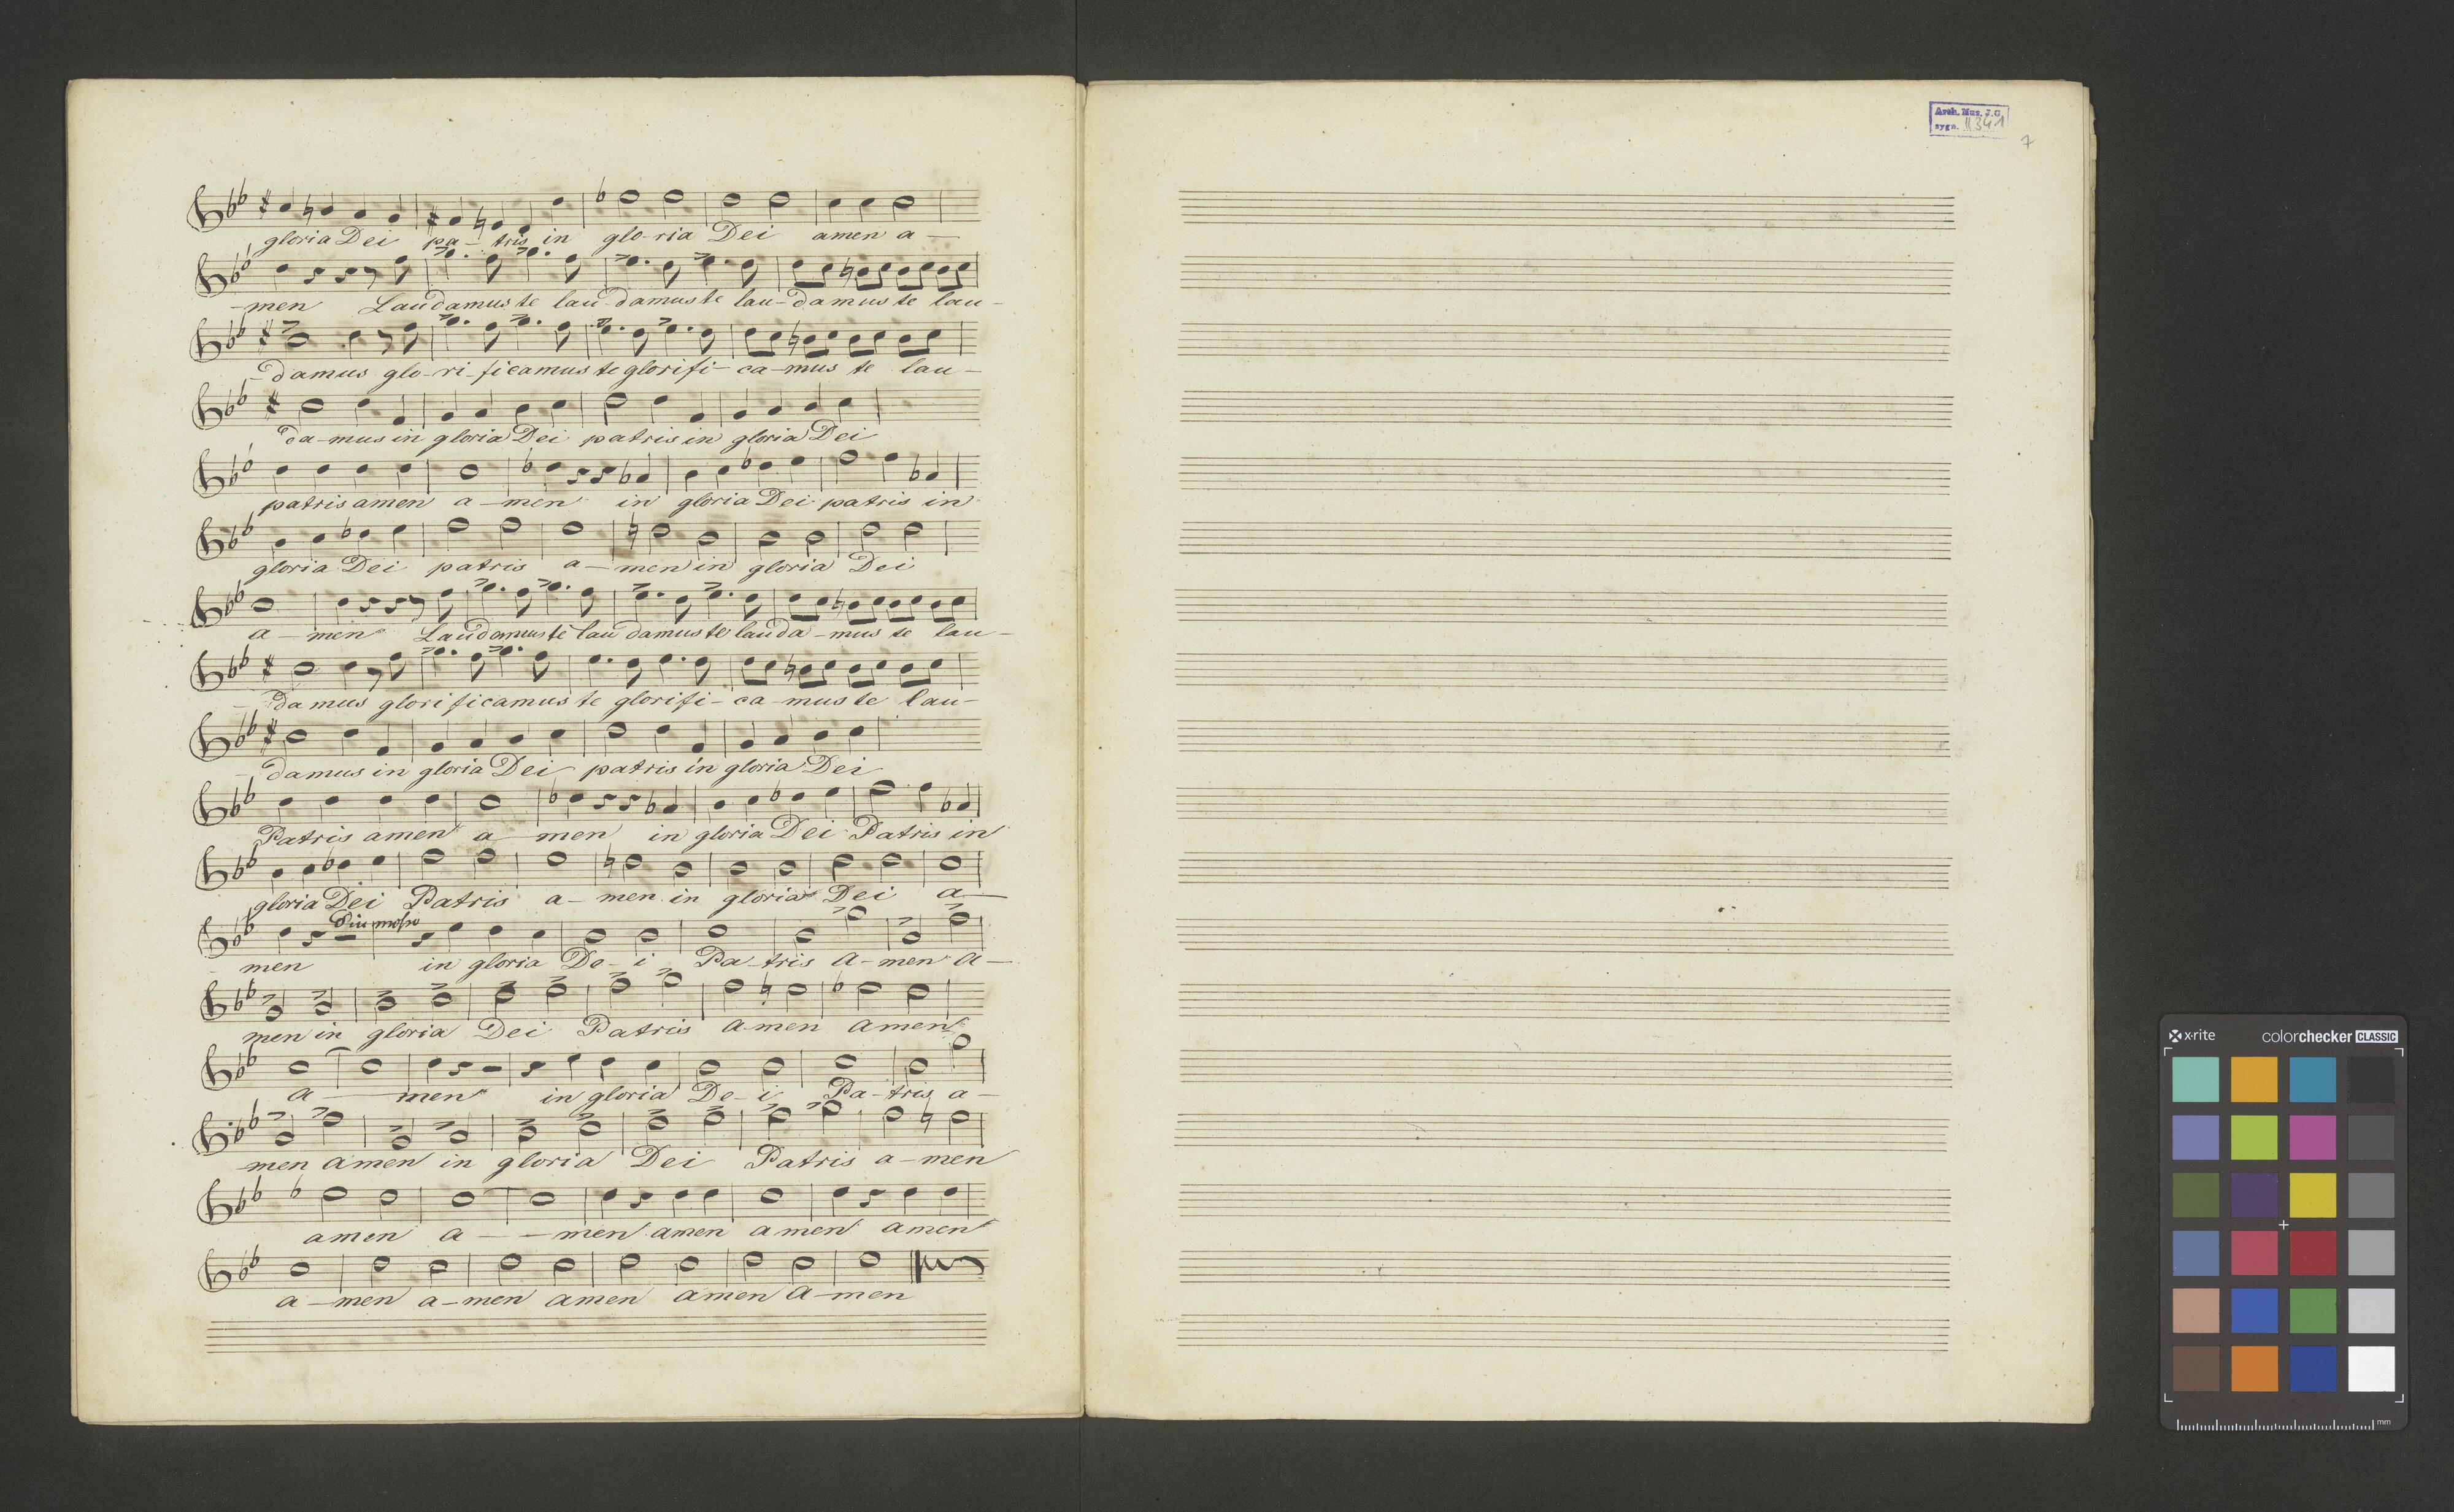 gloria Dei pa - tris in glo - ria Dei amen a -
- men Laudamus te lau - damus te lau - damus te lau -
- damus glo - ri - ficamus te glorifi - ca - mus te lau -
da - mus in gloria Dei patris in gloria Dei
patris amen a - men in gloria Dei patris in
gloria Dei patris a - men in gloria Dei
a - men Laudamus te lau damus te lauda - mus te lau -
- damus glorificamus te glorifi - ca - mus te lau -
- damus in gloria Dei patris in gloria Dei
Patris amen a men in gloria Dei Patris in
gloria Dei Patris a - men in gloria Dei a -
Piu mosso
men in gloria De - i Pa - tris A - men A -
men in gloria Dei Patris amen amen
a - men in gloria De - i Pa - tris a -
- men amen in gloria Dei Patris a - men
amen a - - men amen amen amen
a - men a - men amen amen A - men
Arch. Mus. J.G.
sygn. II 341
7
x-rite colorchecker CLASSIC
mm